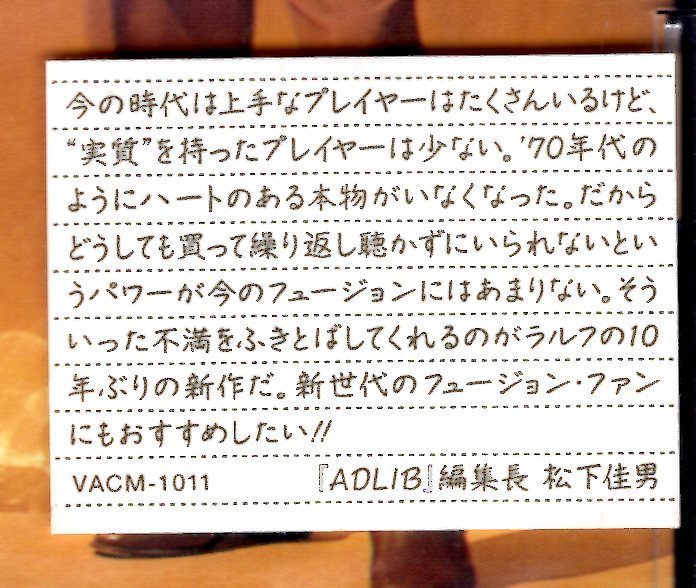 今の時代は上手なプレイヤーはたくさんいるけど、
“実質”を持ったプレイヤーは少ない。'70年代の
ようにハートのある本物がいなくなった。だから
どうしても買って繰り返し聴かずにいられないとい
うパワーが今のフュージョンにはあまりない。そう
いった不満をふきとばしてくれるのがラルフの10
年ぶりの新作だ。新世代のフュージョン・ファン
にもおすすめしたい!!
VACM-1011 『ADLIB』編集長 松下佳男